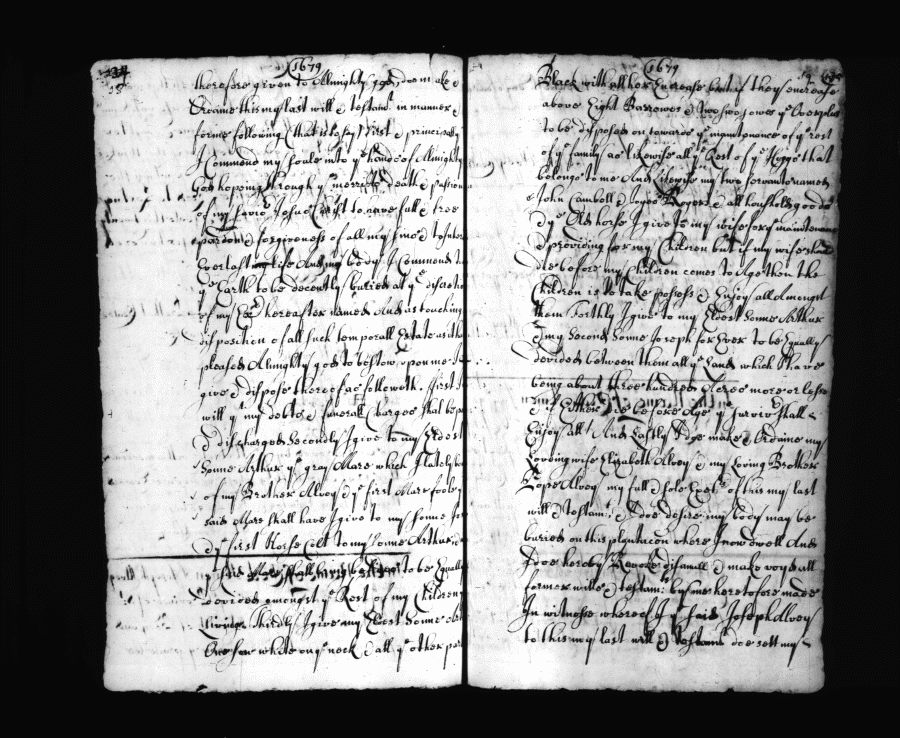 1679
therefore given to Almighty god, doe make &
Ordaine this my last will & testamt. in manner &
forme following (that is to say) first & principally
I Commend my soule into ye hands of Almighty
God hopeing through ye merrits death & passion
of my Savior Jesus Christ to have full & free
pardon & forgiveness of all my sins & to Inher
Everlasting life And my body I Commend to
ye Earth to be decently buried at ye discretio
of my Exrs hereafter named And as touching
disposition of all such temporall Estate as it ha
pleased Almighty god to bestow upon me I
give & dispose thereof as followeth. first I
will yt my debts & funerall Charges shall be p
& discharged Secondly I give to my Eldest
Sonne Arthur ye gray Mare which I lately bo
of my Brother Alvoy & ye first Mare foole y
said Mare shall have I give to my Sonne Jos
& ye first Horse Colt to my Sonne Arthur
said Mare shall to be Equall
devided amongst ye Rest of my Children
Liveing. Thirdly I give my Eldest Sonne Art
One Sow white on ye neck & all ye other par
1679
Black with all her Encrease but if they encrease
above Eight Barrowes & two sowes ye Overplus
to be disposed on towards ye maintenance of ye rest
of ye family as likewise all ye Rest of ye Hoggs that
belongs to me And likewise my two servants named
John Cambell & Roger & all household goods
& ye Old horse I give to my wife for maintenance
& provideing for my Children but if my wife should
die before my Children comes to Age then the
Children is to take possess & Enjoy all Amongst
them forthly I give to my Eldest Sonne Arthur
& my Second Sonne Joseph for Ever to be Equally
devided between them all ye Land which I have
being about three hundred Acres more or lesse
& if Either die before Age ye surviv shall
Enjoy all And Lastly I doe make & Ordaine my
Loveing wife Elizabeth Alvoy & my loving Brother
Pope Alvoy my full & sole Exrs of this my last
will & testamt. & I doe desire my body may be
buried on this plantacon where I now dwell And
I doe hereby Revoke disanull & make voyd all
former wills & testamt: by me heretofore made
In witnesse whereof I ye said Joseph Alvoy
to this my last will & testamt doe sett my